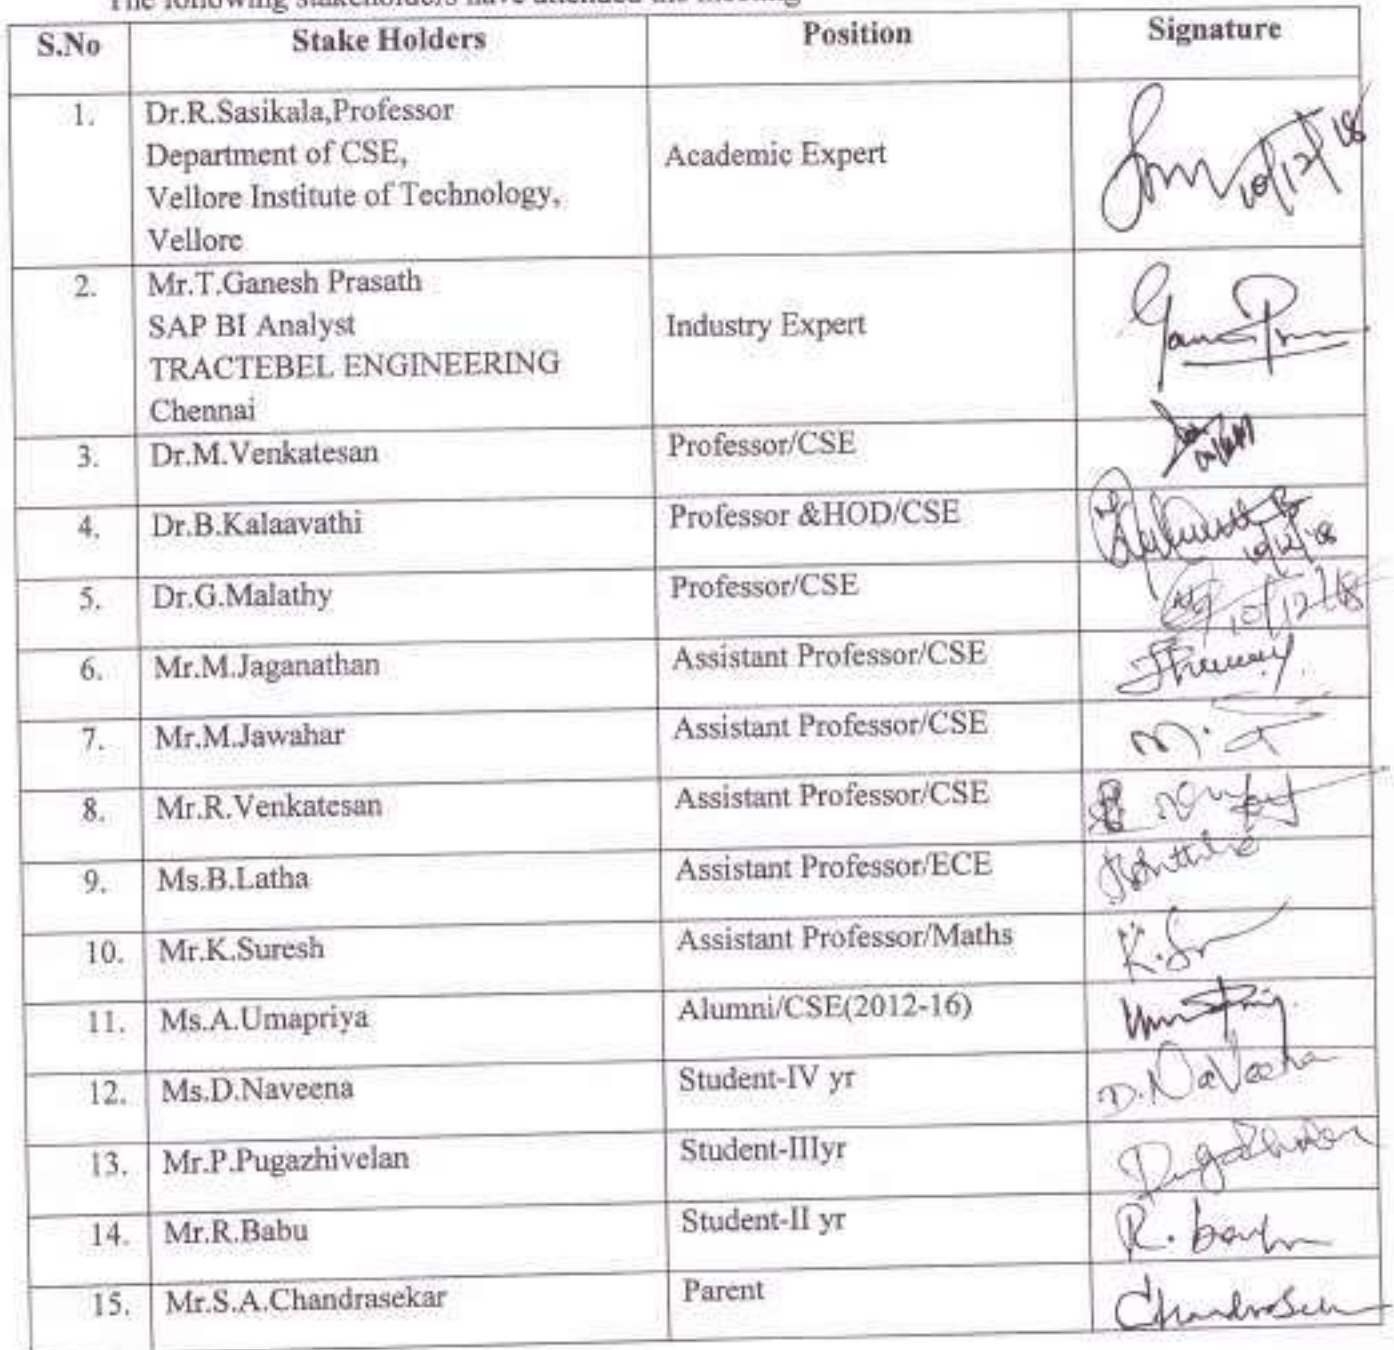 The following stakeholders have attended the meeting
S.No Stake Holders Position Signature
1. Dr.R.Sasikala,Professor
Department of CSE,
Vellore Institute of Technology,
Vellore
Academic Expert
10/12/18
2. Mr.T.Ganesh Prasath
SAP BI Analyst
TRACTEBEL ENGINEERING
Chennai
Industry Expert
3. Dr.M.Venkatesan Professor/CSE
4. Dr.B.Kalaavathi Professor &HOD/CSE
10/12/18
5. Dr.G.Malathy Professor/CSE 10/12/18
6. Mr.M.Jaganathan Assistant Professor/CSE
7. Mr.M.Jawahar Assistant Professor/CSE
8. Mr.R.Venkatesan Assistant Professor/CSE
9. Ms.B.Latha Assistant Professor/ECE
10. Mr.K.Suresh Assistant Professor/Maths
11. Ms.A.Umapriya Alumni/CSE(2012-16)
12. Ms.D.Naveena Student-IV yr D.Naveena
13. Mr.P.Pugazhivelan Student-IIIyr
14. Mr.R.Babu Student-II yr
15. Mr.S.A.Chandrasekar Parent